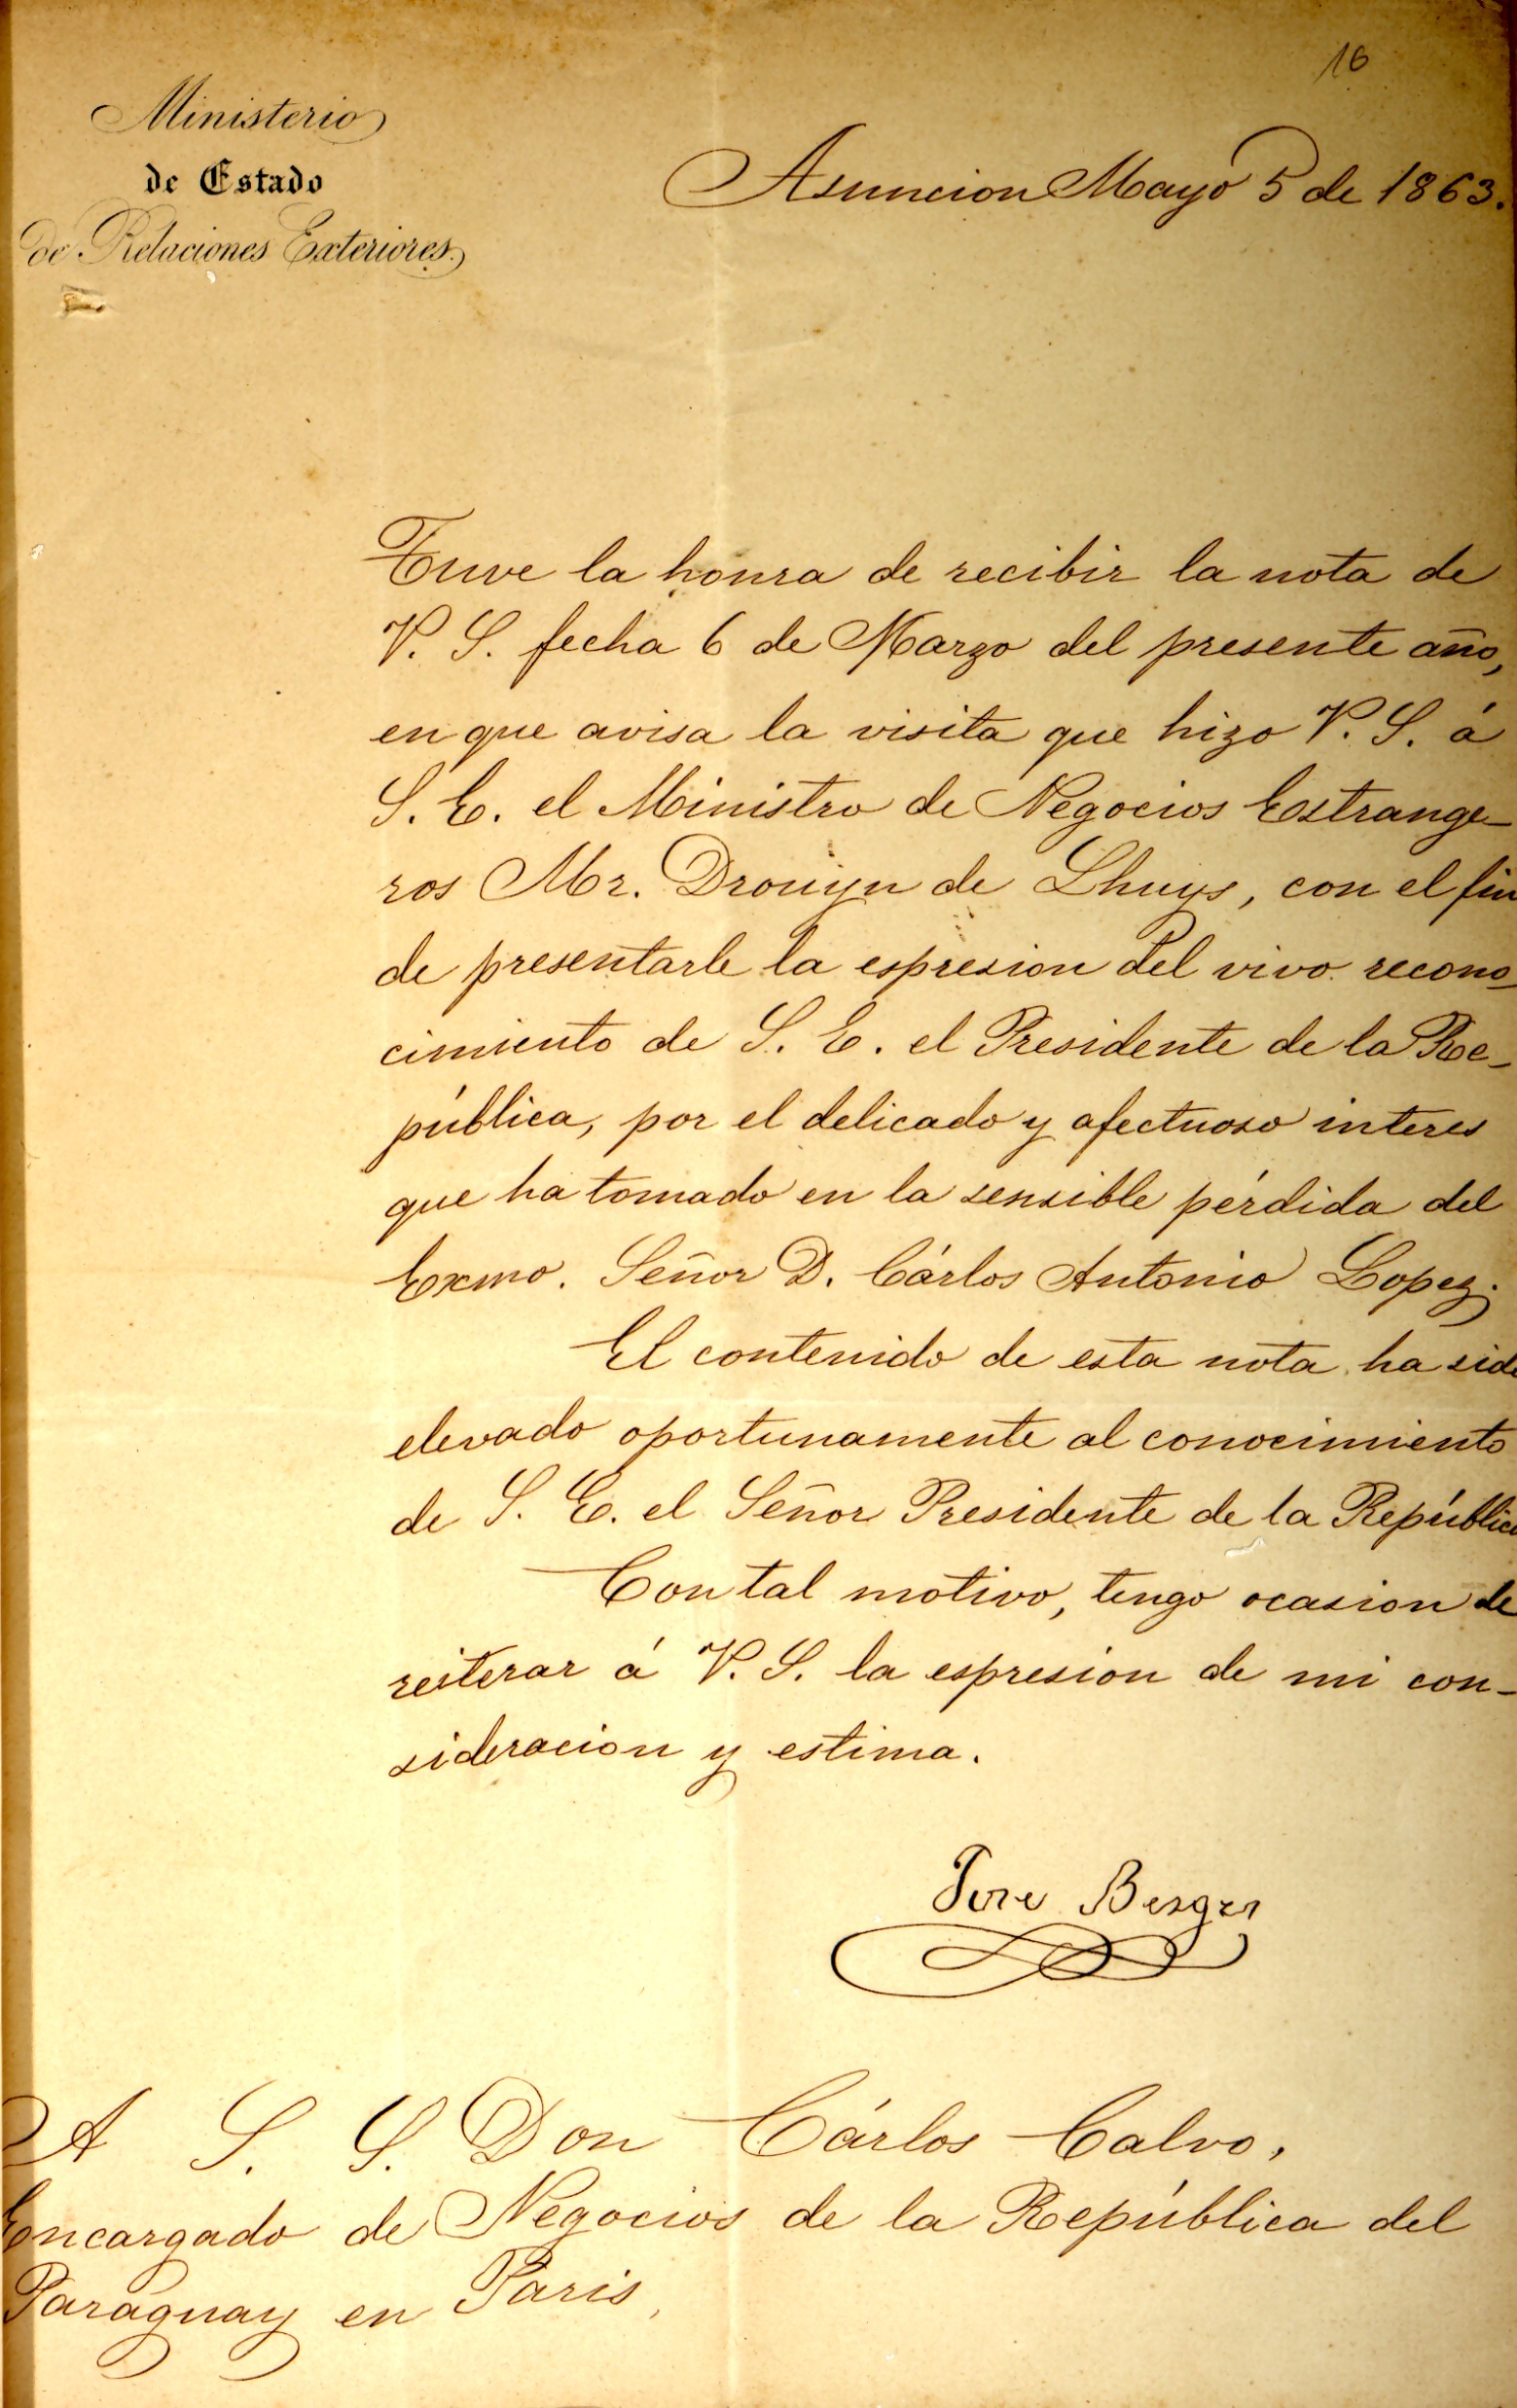 16
Ministerio
de Estado
de Relaciones Exteriores.
Asuncion Mayo 5 de 1863.
Tuve la honra de recibir la nota de
V. S. fecha 6 de Marzo del presente año,
en que avisa la visita que hizo V. S. á
S. E. el Ministro de Negocios Estrange-
ros Mr. Drouyn de Lhuys, con el fin
de presentarle la espresion del vivo recono-
cimiento de S. E. el Presidente de la Re-
pública, por el delicado y afectuoso interes
que ha tomado en la sensible pérdida del
Exmo. Señor D. Cárlos Antonio Lopez.
El contenido de esta nota ha sido
elevado oportunamente al conocimiento
de S. E. el Señor Presidente de la República
Con tal motivo, tengo ocasion de
reiterar á V. S. la espresion de mi con-
sideracion y estima.
José Berges
A S. S. Don Cárlos Calvo,
Encargado de Negocios de la República del
Paraguay en Paris,